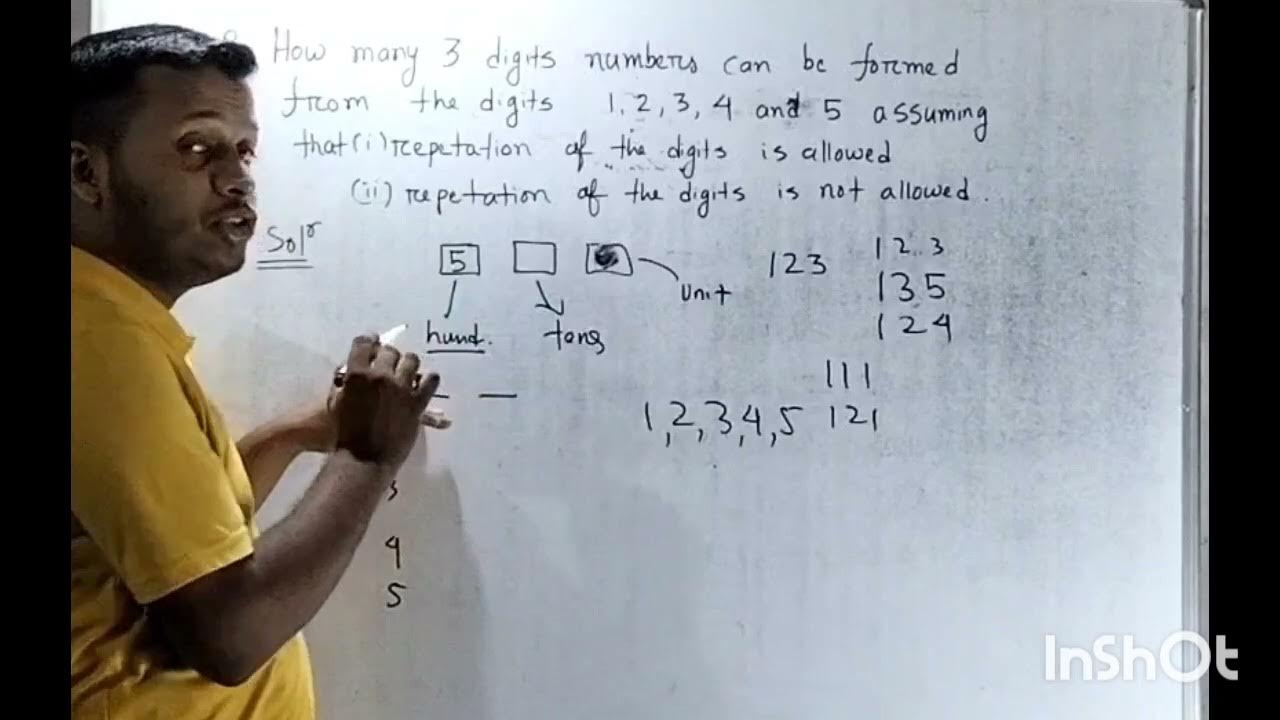 How many 3 digits numbers can be formed
from the digits 1, 2, 3, 4 and 5 assuming
that (i) repetation of the digits is allowed
(ii) repetation of the digits is not allowed.
Solⁿ
5
Unit
hund.
tens
123
1 2 3
135
124
111
1, 2, 3, 4, 5
121
3
4
5
InShOt